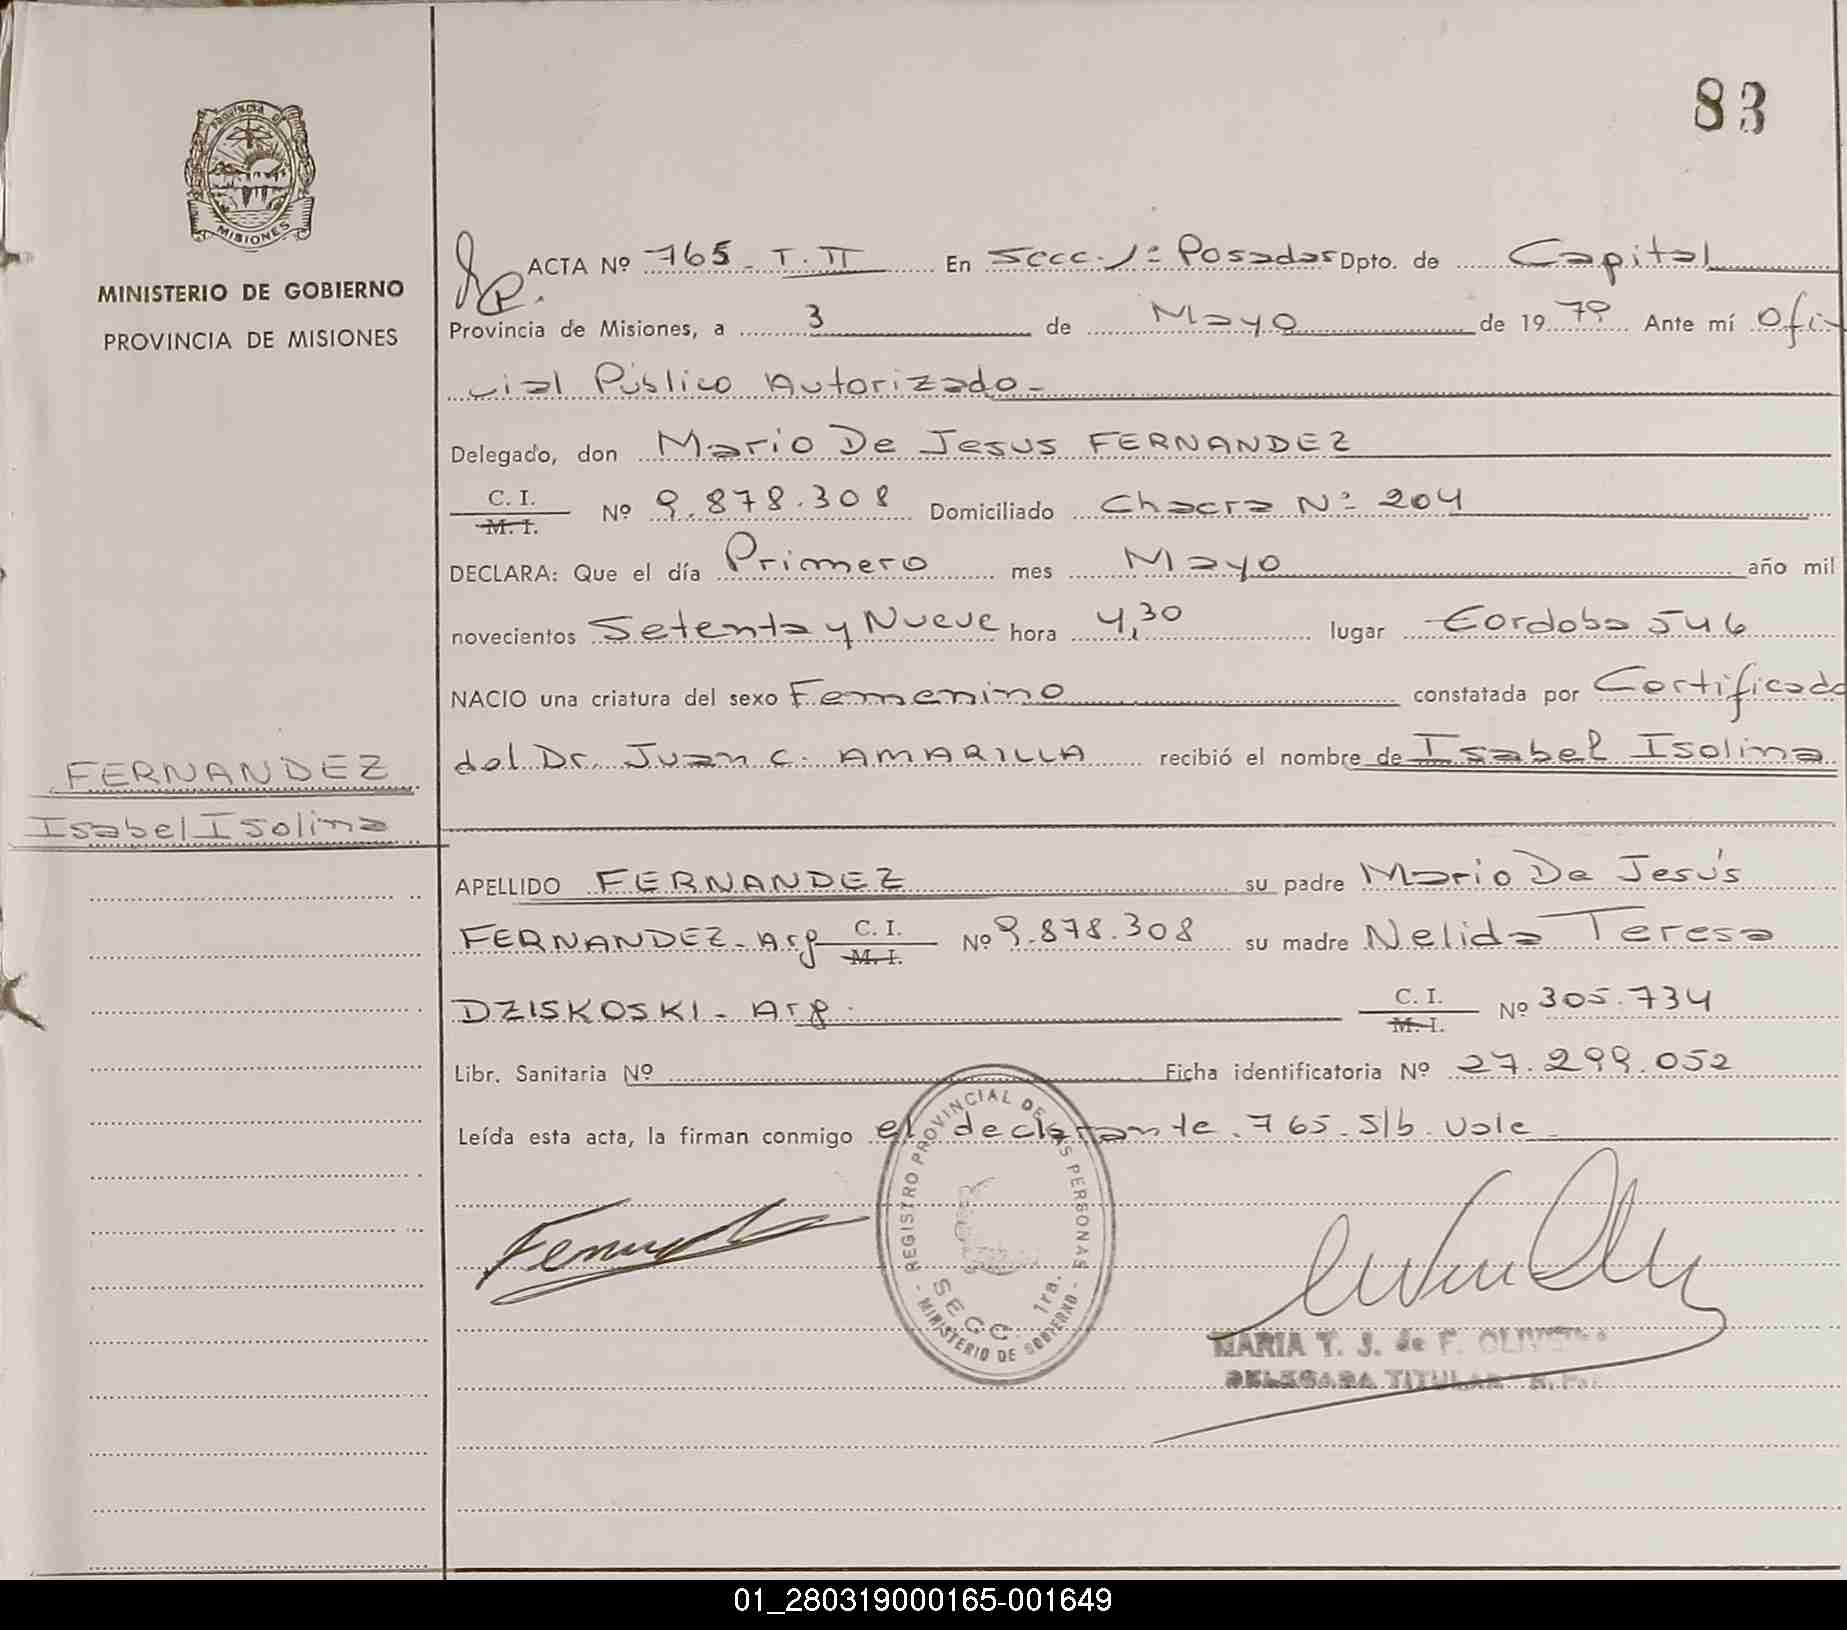 83
PROVINCIA DE
MISIONES
MINISTERIO DE GOBIERNO
PROVINCIA DE MISIONES
ACTA Nº 765 - T. II En Secc. 1ª Posadas Dpto. de Capital
Provincia de Misiones, a 3 de Mayo de 1979 Ante mí Ofi-
cial Público Autorizado-
Delegado, don Mario De Jesus FERNANDEZ
C. I.
M. I.
Nº 9.878.308 Domiciliado Chacra Nº 204
DECLARA: Que el día Primero mes Mayo año mil
novecientos Setenta y Nueve hora 4,30 lugar Cordoba 546
NACIO una criatura del sexo Femenino constatada por Certificado
del Dr. Juan C. AMARILLA recibió el nombre de Isabel Isolina
FERNANDEZ
Isabel Isolina
APELLIDO FERNANDEZ su padre Mario De Jesús
FERNANDEZ - Arg C. I. M. I. Nº 9.878.308 su madre Nelida Teresa
DZISKOSKI - Arg. C. I. M. I. Nº 305.734
Libr. Sanitaria Nº Ficha identificatoria Nº 27.299.052
Leída esta acta, la firman conmigo el declarante. 765. S/b. Vale
REGISTRO PROVINCIAL DE LAS PERSONAS
SECC. 1ra.
- MINISTERIO DE GOBIERNO -
MARIA T. J. de F. OLIVEIRA
DELEGADA TITULAR
01_280319000165-001649